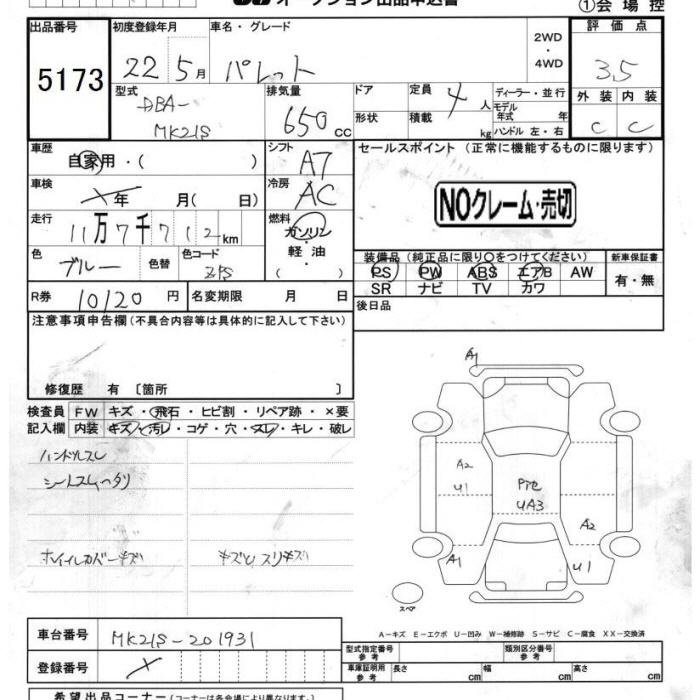 オークション出品申込書
①会場控
出品番号 5173
初度登録年月 22年 5月
車名・グレード パレット
2WD・4WD
評価点 3.5
外装 C 内装 C
型式 DBA- MK21S
排気量 650 cc
ドア 形状
定員 4 人
積載 kg
ディーラー・並行
モデル年式 年
ハンドル 左・右
車歴 自家用・( )
シフト A7
セールスポイント (正常に機能するものに限ります)
NOクレーム・売切
車検 年 月( 日)
冷房 AC
走行 11万7千712km
燃料 ガソリン・軽油・( )
色 ブルー 色替 色コード ZJS
装備品 (純正品に限り○をつけてください)
新車保証書 有・無
PS PW ABS エアB AW
SR ナビ TV カワ
R券 10120 円 名変期限 月 日
後日品
注意事項申告欄 (不具合内容等は具体的に記入して下さい)
修復歴 有 〔箇所 〕
検査員記入欄
FW キズ・飛石・ヒビ割・リペア跡・×要
内装 キズ・汚レ・コゲ・穴・スレ・キレ・破レ
ハンドルスレ
シートスレヘタリ
ホイルカバーキズ
キズ
スリキズ
A1
A2
U1
UA3
A2
A1
U1
スペア
A-キズ E-エクボ U-凹み W-補修跡 S-サビ C-腐食 XX-交換済
車台番号 MK21S-201931
登録番号
型式指定番号 参考 類別区分番号 参考
車庫証明用 参考 長さ cm 幅 cm 高さ cm
希望出品コーナー (コーナーは各会場により異なります)